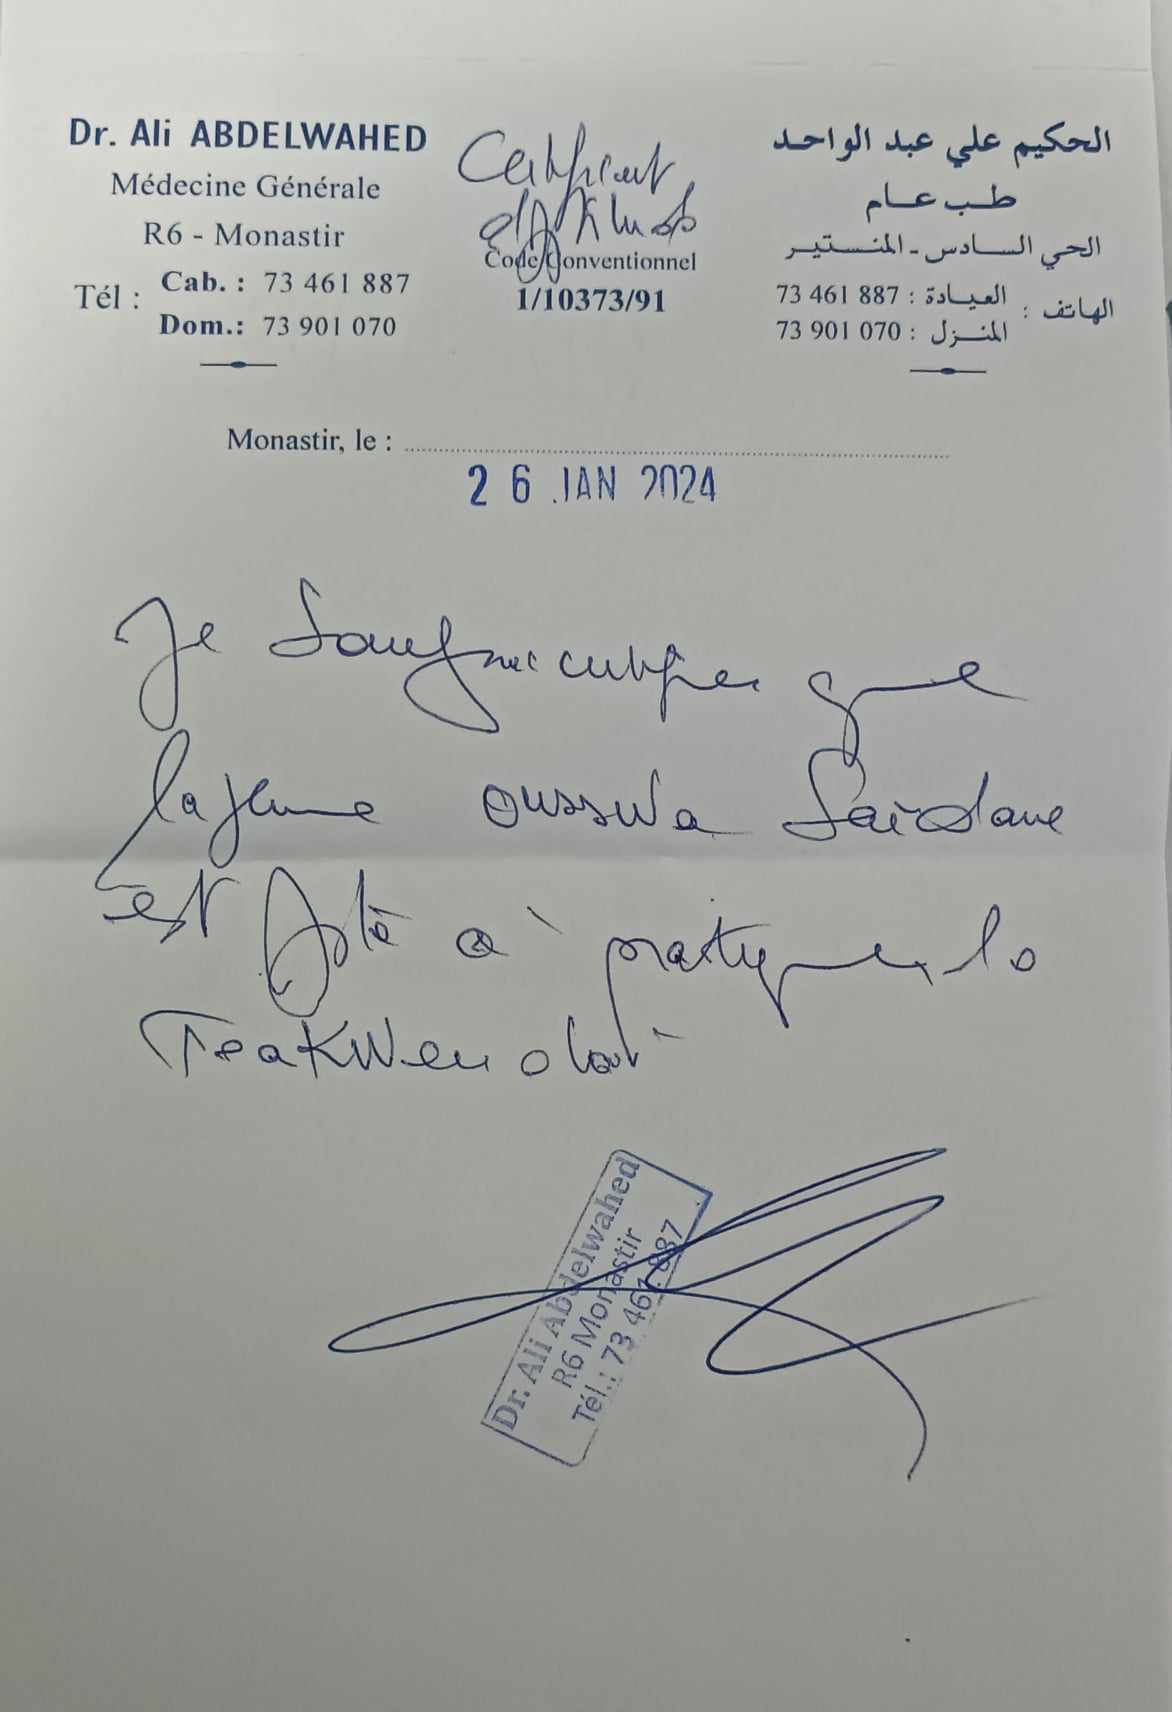 Dr. Ali ABDELWAHED
Médecine Générale
R6 - Monastir
Tél : Cab. : 73 461 887
Dom.: 73 901 070
Certificat
Code Conventionnel
1/10373/91
الحكيم علي عبد الواحد
طب عام
الحي السادس - المنستير
الهاتف : العيادة : 887 461 73
المنزل : 070 901 73
Monastir, le :
26 JAN 2024
Je soussigné certifier que
la jeune ousswa Saidane
est apte à pratiquer le
Teakwendo
Dr. Ali Abdelwahed
R6 Monastir
Tél.: 73 461 887